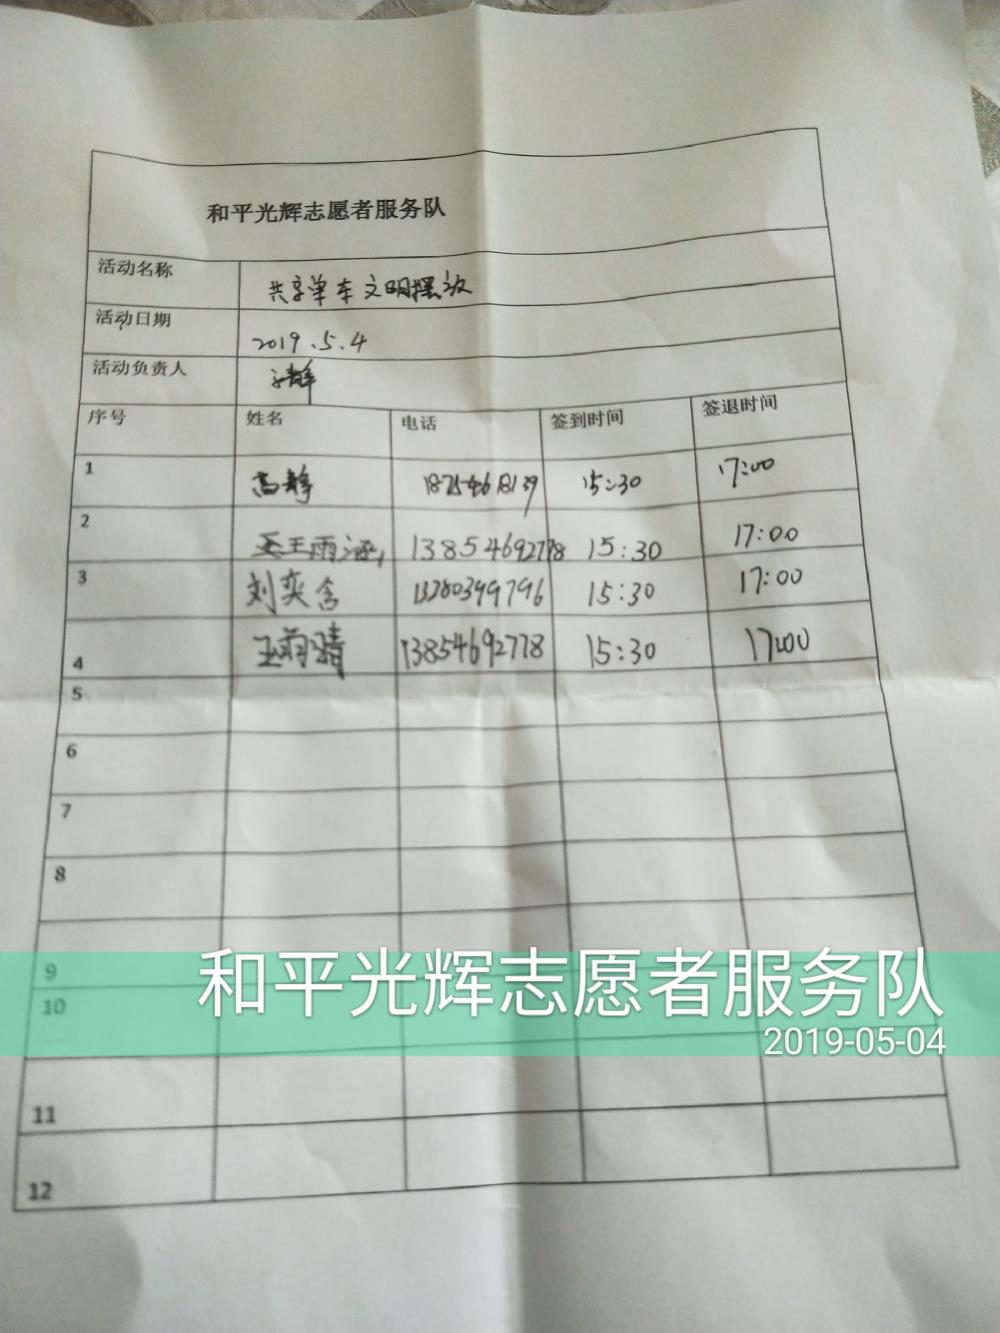 和平光辉志愿者服务队
活动名称 共享单车文明摆放
活动日期 2019.5.4
活动负责人
序号 姓名 电话 签到时间 签退时间
1 高静 18754618139 15:30 17:00
2 王雨涵 13854692778 15:30 17:00
3 刘奕含 15:30 17:00
4 王萌晴 13854692778 15:30 17:00
5
6
7
8
9
10
11
12
和平光辉志愿者服务队
2019-05-04